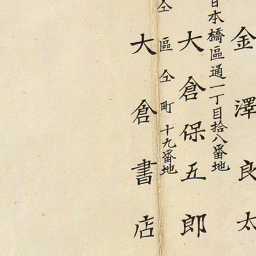 金澤良太
日本橋區通一丁目拾八番地
大倉保五郎
仝區仝町十九番地
大倉書店